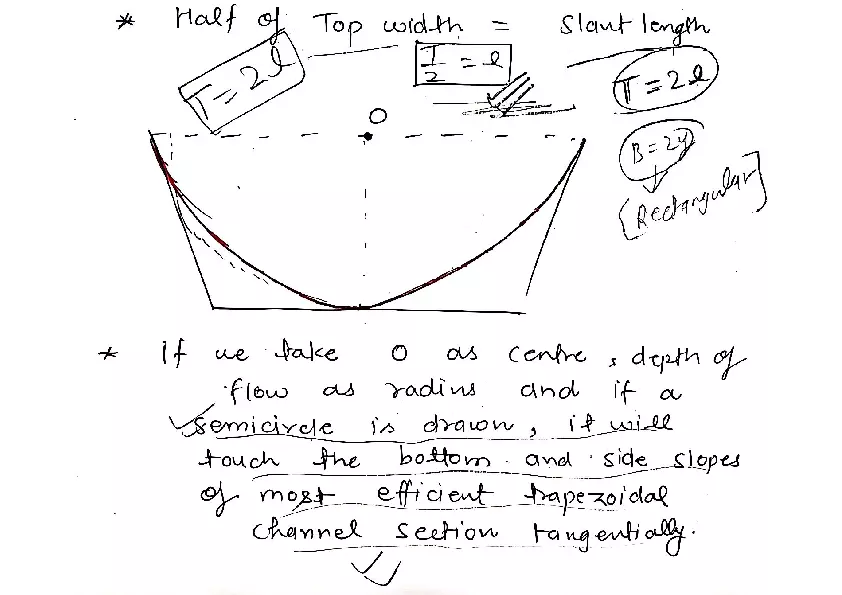 * Half of Top width = Slant length
T = 2l
T/2 = l
T = 2l
O
B = 2y
[Rectangular]
* If we take O as centre, depth of
flow as radius and if a
semicircle is drawn, it will
touch the bottom and side slopes
of most efficient trapezoidal
channel section tangentially.